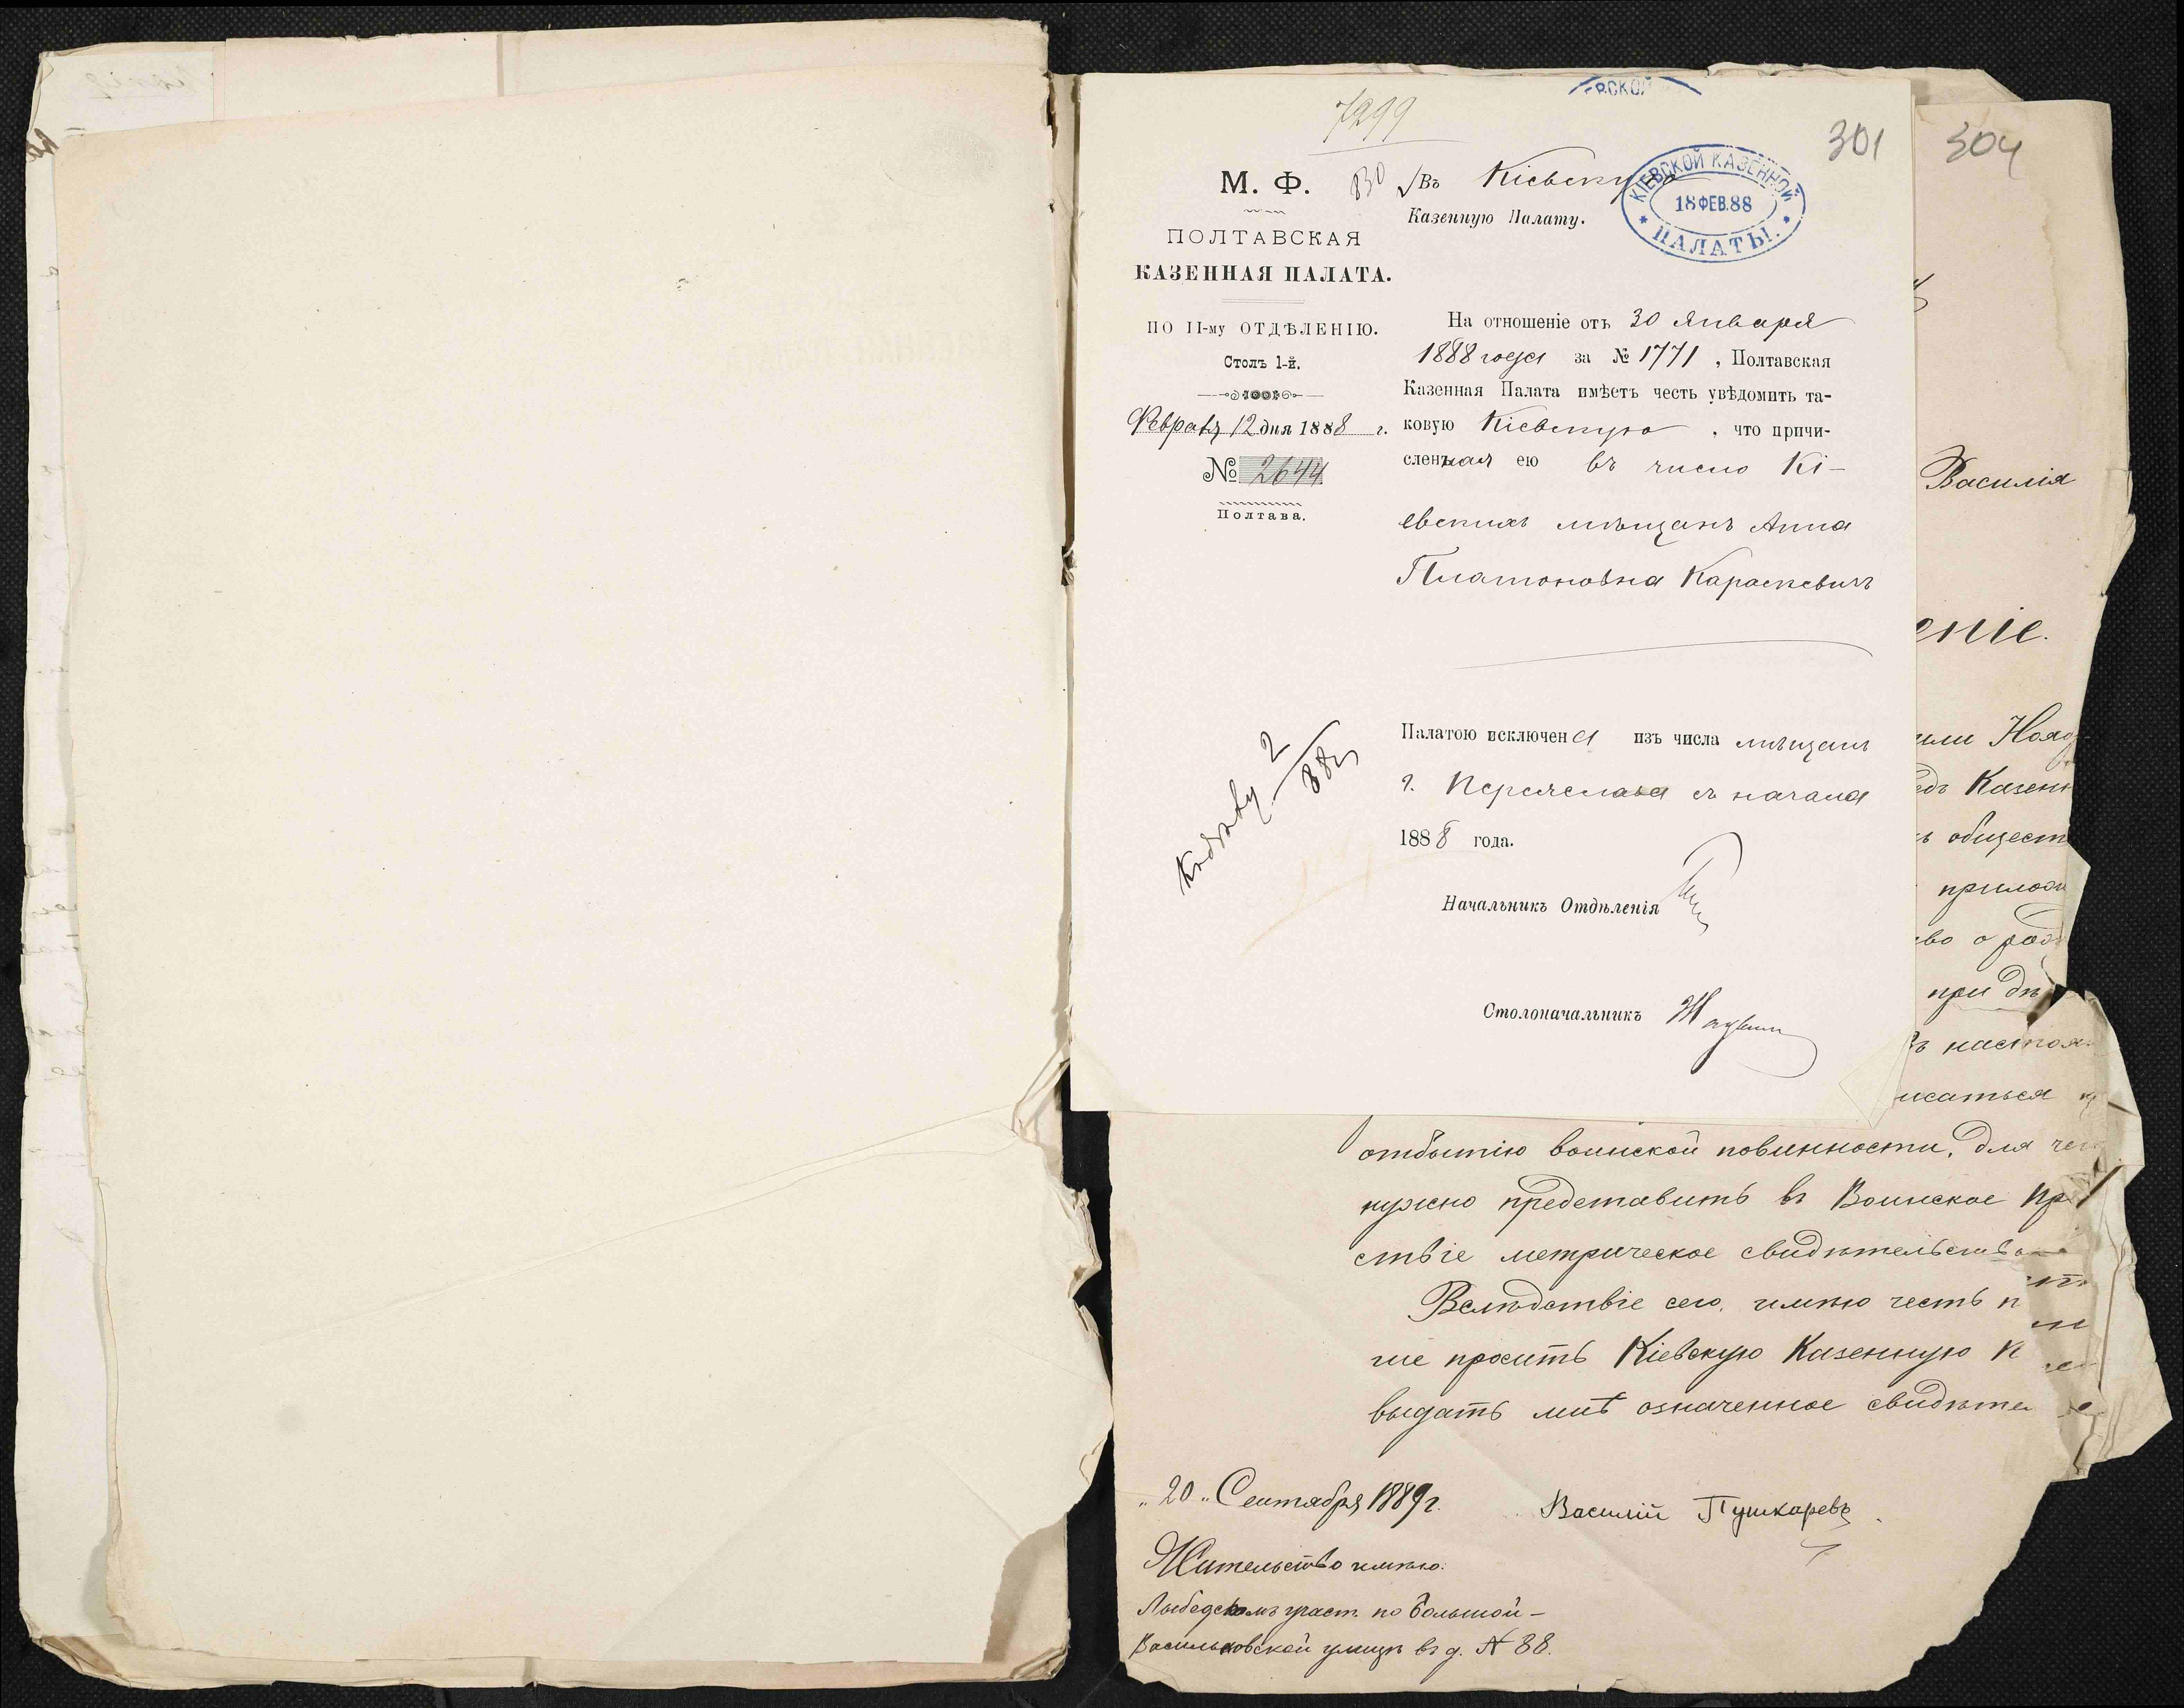 7299
301
304
ЕВСКОЙ
КІЕВСКОЙ КАЗЕННОЙ
18 ФЕВ. 88
ПАЛАТЫ.
М. Ф.
ПОЛТАВСКАЯ
КАЗЕННАЯ ПАЛАТА.
ПО II-му ОТДѢЛЕНІЮ.
Столъ 1-й.
12 дня 1888 г.
№ 2644
Полтава.
Въ Кіевскую
Казенную Палату.
На отношеніе отъ 30 Января
1888 года за № 1771, Полтавская
Казенная Палата имѣетъ честь увѣдомить та-
ковую Кіевскую, что причи-
сленная ею въ число Кі-
евскихъ мѣщанъ Анна
Платоновна Караскевичъ
Палатою исключена изъ числа мѣщанъ
г. Переяслава съ начала
1888 года.
Начальникъ Отдѣленія
Столоначальникъ
Василія
еніе.
Казенн
общест
при дѣ
отбытію воинской повинности, для чего
нужно представить въ Воинское Пр
ствіе метрическое свидѣтельство
Вслѣдствіе сего, имѣю честь п
ше просить Кіевскую Казенную П
выдать мнѣ означенное свидѣтел
„20„ Сентября 1889 г.
Василій Пушкаревъ
Жительство имѣю:
Лыбедскомъ участ. по Большой-
Васильковской улицѣ въ д. № 88.